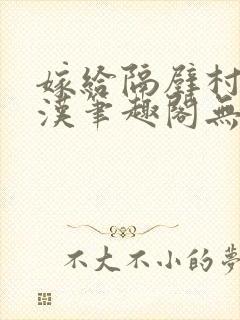 嫁給隔壁村
漢筆趣閣無
不大不小的夢